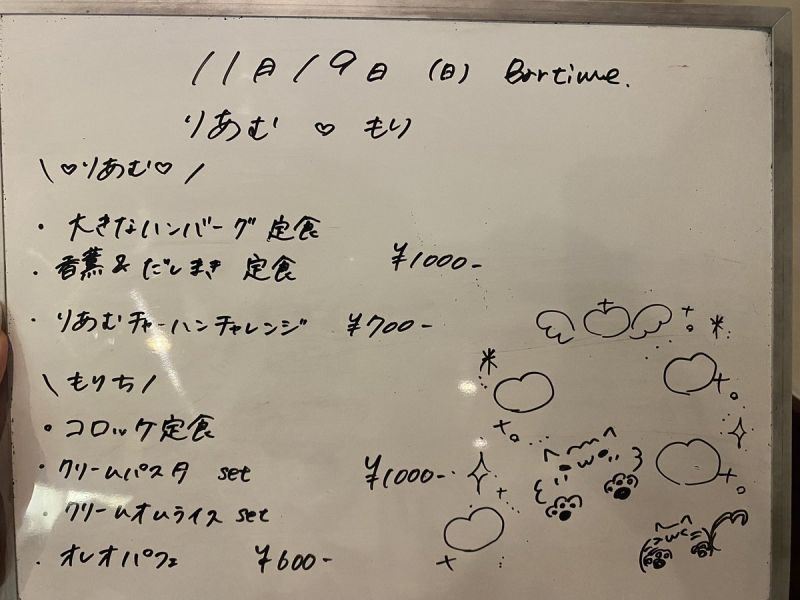 11月19日 (日) Bartime.
りあむ ♡ もり
\♡りあむ♡/
・大きなハンバーグ定食
・香薫&だしまき定食 ¥1000-
・りあむチャーハンチャレンジ ¥700-
\もりち/
・コロッケ定食
・クリームパスタ set ¥1000-
・クリームオムライス set
・オレオパフェ ¥600-